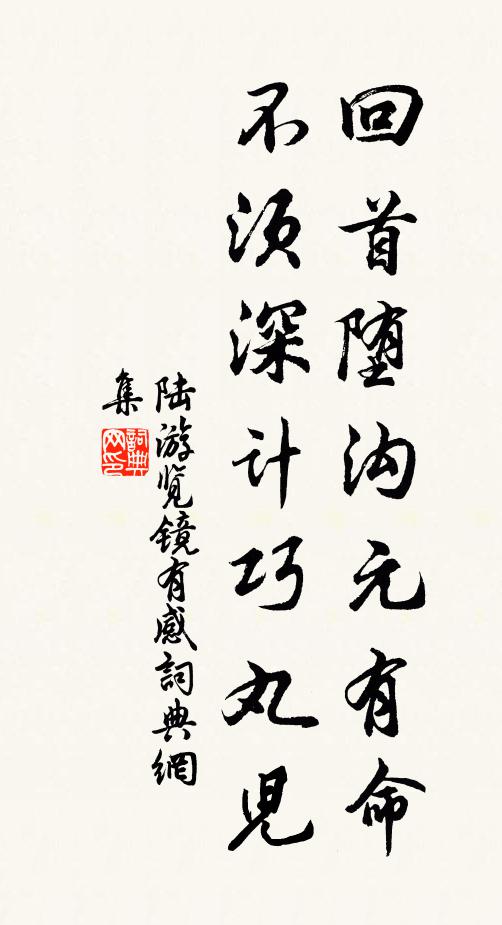 回首堕沟元有命
不须深计巧丸児
陆游览镜有感詞典網
集
詞典
网印